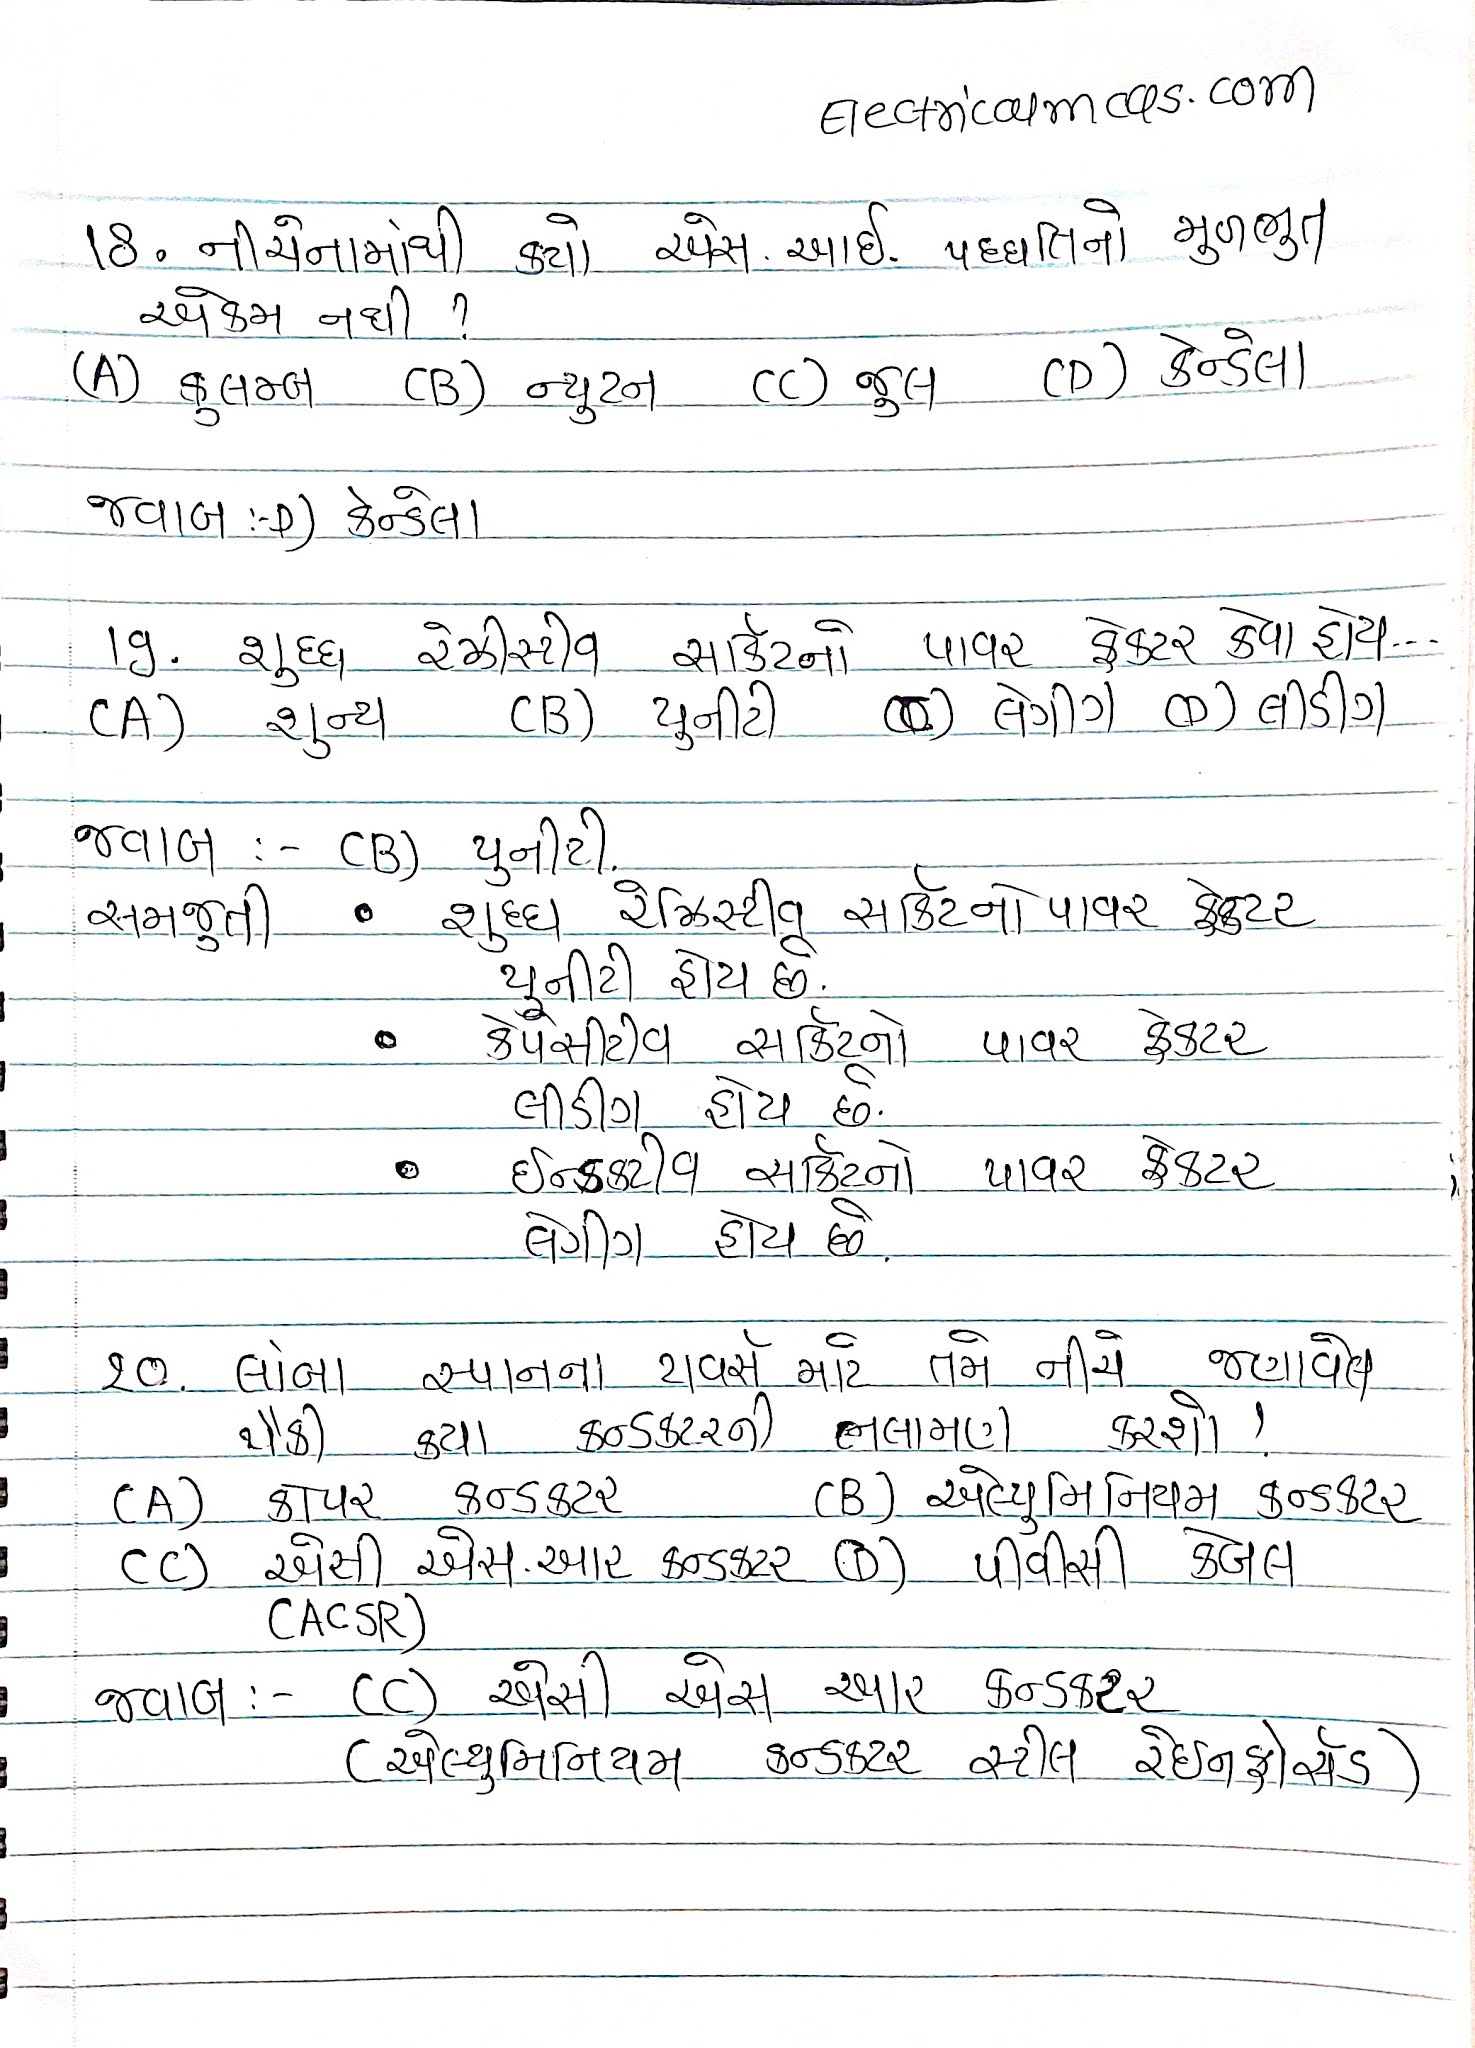 Electricalmcqs.com
18. નીચેનામાંથી ક્યો એસ.આઈ. પધ્ધતિનો મુળભુત
એકમ નથી ?
(A) કુલમ્બ (B) ન્યુટન (C) જૂલ (D) કેન્ડેલા
જવાબ :- D) કેન્ડેલા
19. શુધ્ધ રેઝીસ્ટીવ સર્કિટનો પાવર ફેક્ટર કેવા હોય...
(A) શુન્ય (B) યુનીટી (C) લેગીગ (D) લીડીગ
જવાબ :- (B) યુનીટી.
સમજુતી • શુધ્ધ રેઝિસ્ટીવ સર્કિટનો પાવર ફેક્ટર
યૂનીટી હોય છે.
• કેપેસીટીવ સર્કિટનો પાવર ફેક્ટર
લીડીગ હોય છે.
• ઈન્ડક્ટીવ સર્કિટનો પાવર ફેક્ટર
લેગીગ હોય છે.
20. લાંબા સ્પાનના ટાવર્સ માટે તમે નીચે જણાવેલ
પૈકી ક્યા કન્ડક્ટરની ભલામણ કરશો !
(A) કોપર કન્ડક્ટર (B) એલ્યુમિનિયમ કન્ડક્ટર
(C) એસી એસ.આર કન્ડક્ટર (D) પીવીસી કેબલ
(ACSR)
જવાબ :- (C) એસી એસ આર કન્ડક્ટર
(એલ્યુમિનિયમ કન્ડક્ટર સ્ટીલ રેઈનફોર્સેડ)